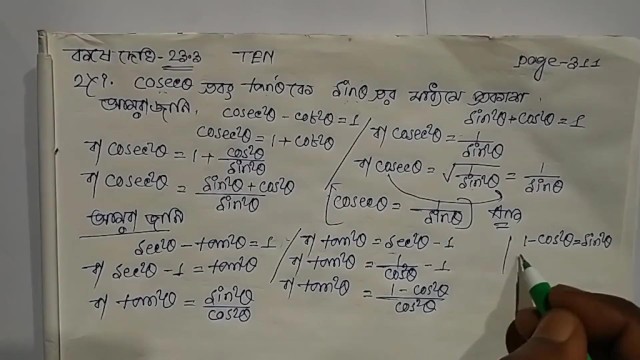 কষে দেখি-23.3 TEN page-311
2x9. cosecθ এবং tanθ কে sinθ এর মাধ্যমে প্রকাশ।
আমরা জানি,
cosec²θ - cot²θ = 1
cosec²θ = 1 + cot²θ
বা cosec²θ = 1 + cos²θ/sin²θ
বা cosec²θ = (sin²θ + cos²θ)/sin²θ
sin²θ + cos²θ = 1
বা cosec²θ = 1/sin²θ
বা cosecθ = √(1/sin²θ) = 1/sinθ
cosecθ = 1/sinθ Ans
আমরা জানি
sec²θ - tan²θ = 1
বা sec²θ - 1 = tan²θ
বা tan²θ = sin²θ/cos²θ
বা tan²θ = sec²θ - 1
বা tan²θ = 1/cos²θ - 1
বা tan²θ = (1 - cos²θ)/cos²θ
1 - cos²θ = sin²θ